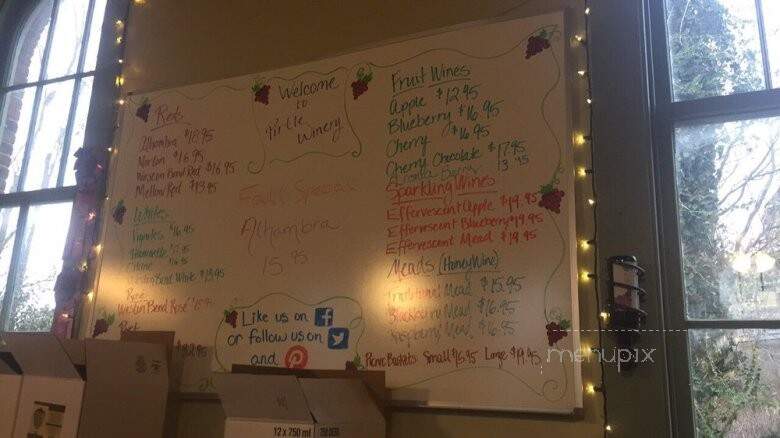 Welcome
to
Pirtle
Winery
Reds
Alhambra $18.95
Norton $16.95
Weston Bend Red $16.95
Mellow Red $13.95
Whites
Vignoles $16.95
Weston Bend White $13.95
Rosé
Weston Bend Rosé
Port
Specials
Alhambra
15.95
Like us on
or follow us on
and
Fruit Wines
Apple $12.95
Blueberry $16.95
Cherry $16.95
Cherry Chocolate $17.95
Sparkling Wines
Effervescent Apple $19.95
Effervescent Blueberry $19.95
Effervescent Mead $19.95
Meads (Honey Wine)
Traditional Mead $15.95
Blackberry Mead $16.95
Raspberry Mead $16.95
Picnic Baskets Small $16.95 Large $19.95
menupix
12 x 750 ml